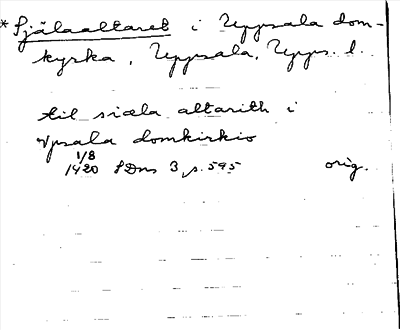 * Själaaltaret i Uppsala dom-
kyrka, Uppsala, Upps. l.
til siæla altarith i
Vpsala domkirkio
1/8
1420 SDns 3, s. 595 orig.